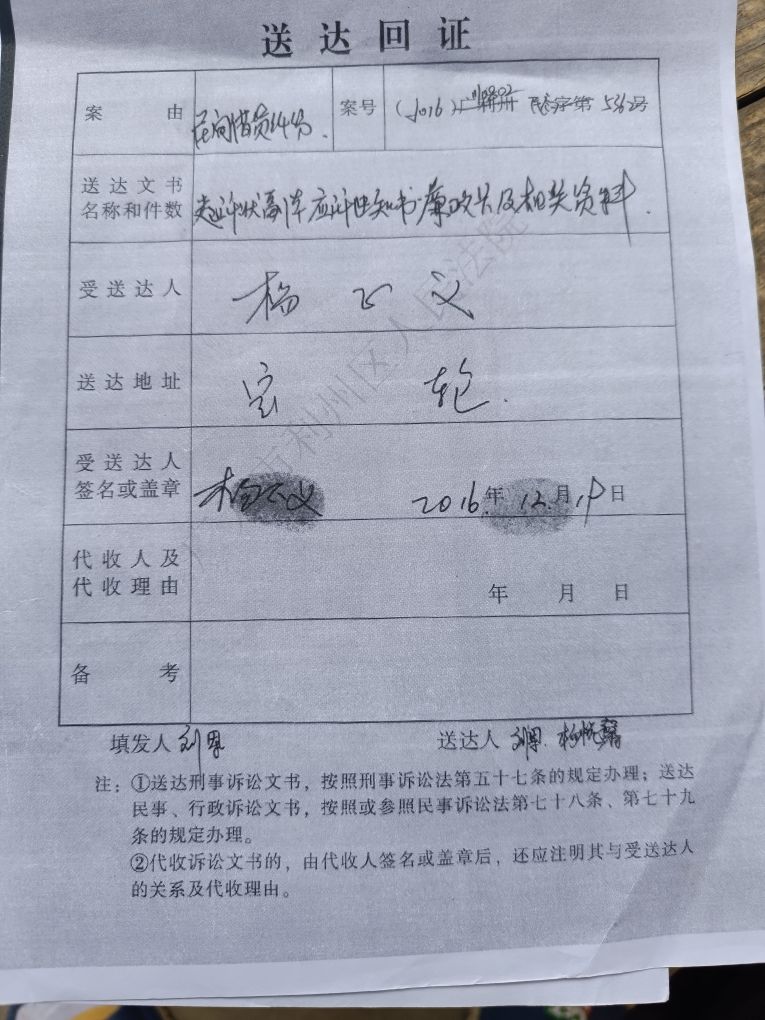 送达回证
案由 民间借贷纠纷. 案号 (2016)川0802 民初字第 5362号
送达文书
名称和件数 起诉状副本 应诉通知书 廉政 及相关资料.
受送达人 杨 义
送达地址 宝轮.
受送达人
签名或盖章 杨 义 2016.年 12.月 日
代收人及
代收理由 年 月 日
备考
填发人 刘 送达人 刘 . 杨
注:①送达刑事诉讼文书,按照刑事诉讼法第五十七条的规定办理;送达
民事、行政诉讼文书,按照或参照民事诉讼法第七十八条、第七十九
条的规定办理。
②代收诉讼文书的,由代收人签名或盖章后,还应注明其与受送达人
的关系及代收理由。
市利州区人民法院